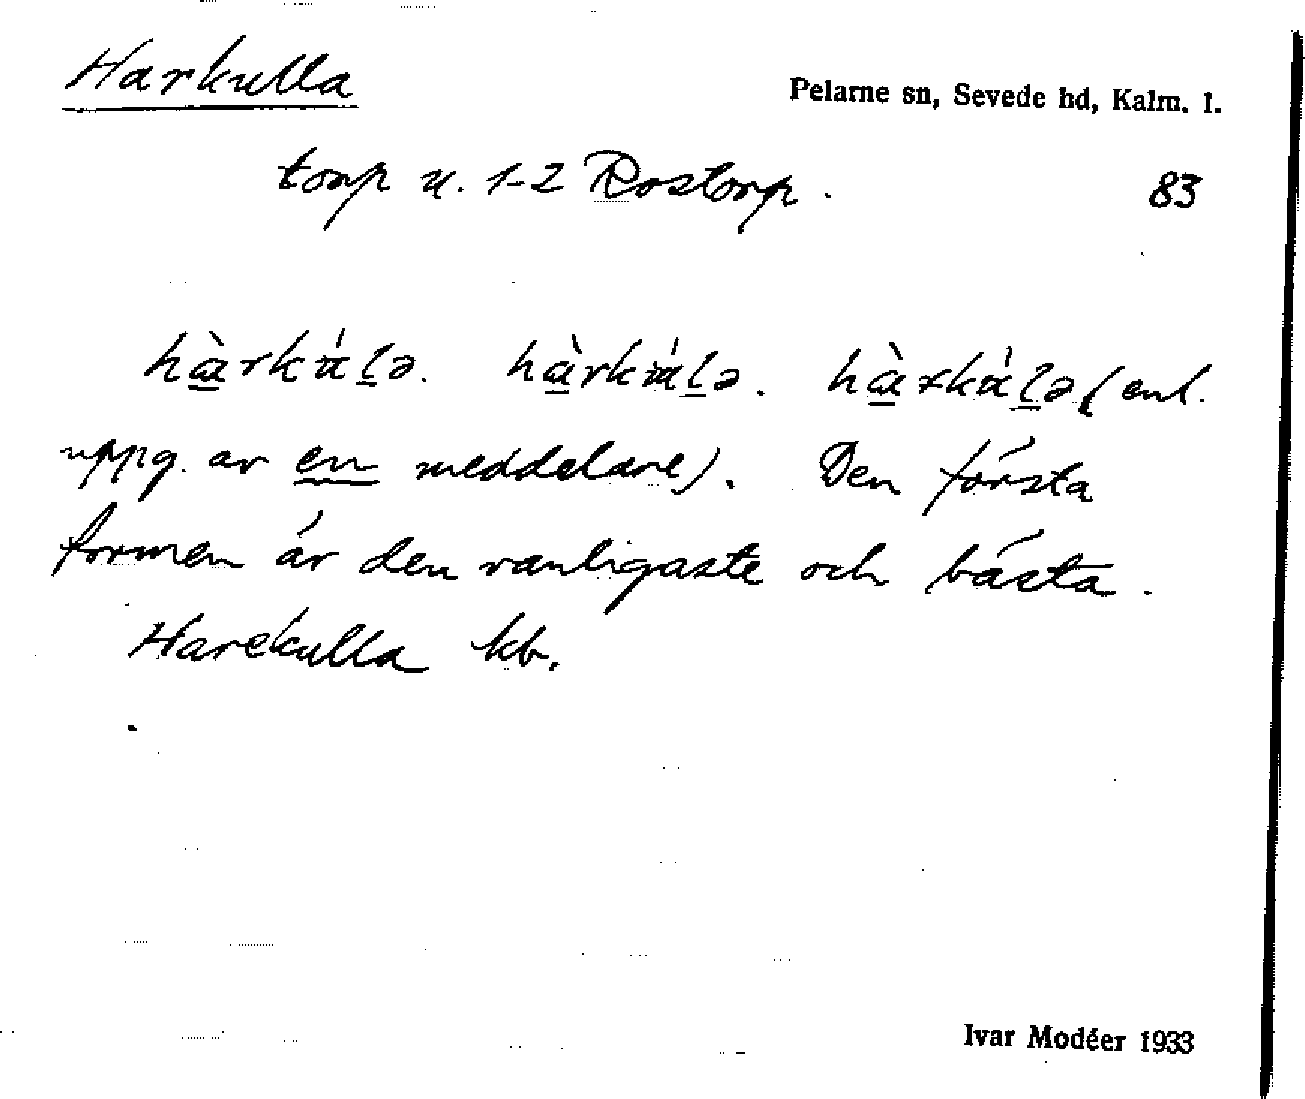 Harkulla
Pelarne sn, Sevede hd, Kalm. l.
torp u. 1-2 Rostorp.
83
hàrkúlə. hàrkúlə. hàrkúlə (enl.
uppg. av en meddelare). Den första
formen är den vanligaste och bästa.
Harekulla kb.
Ivar Modéer 1933